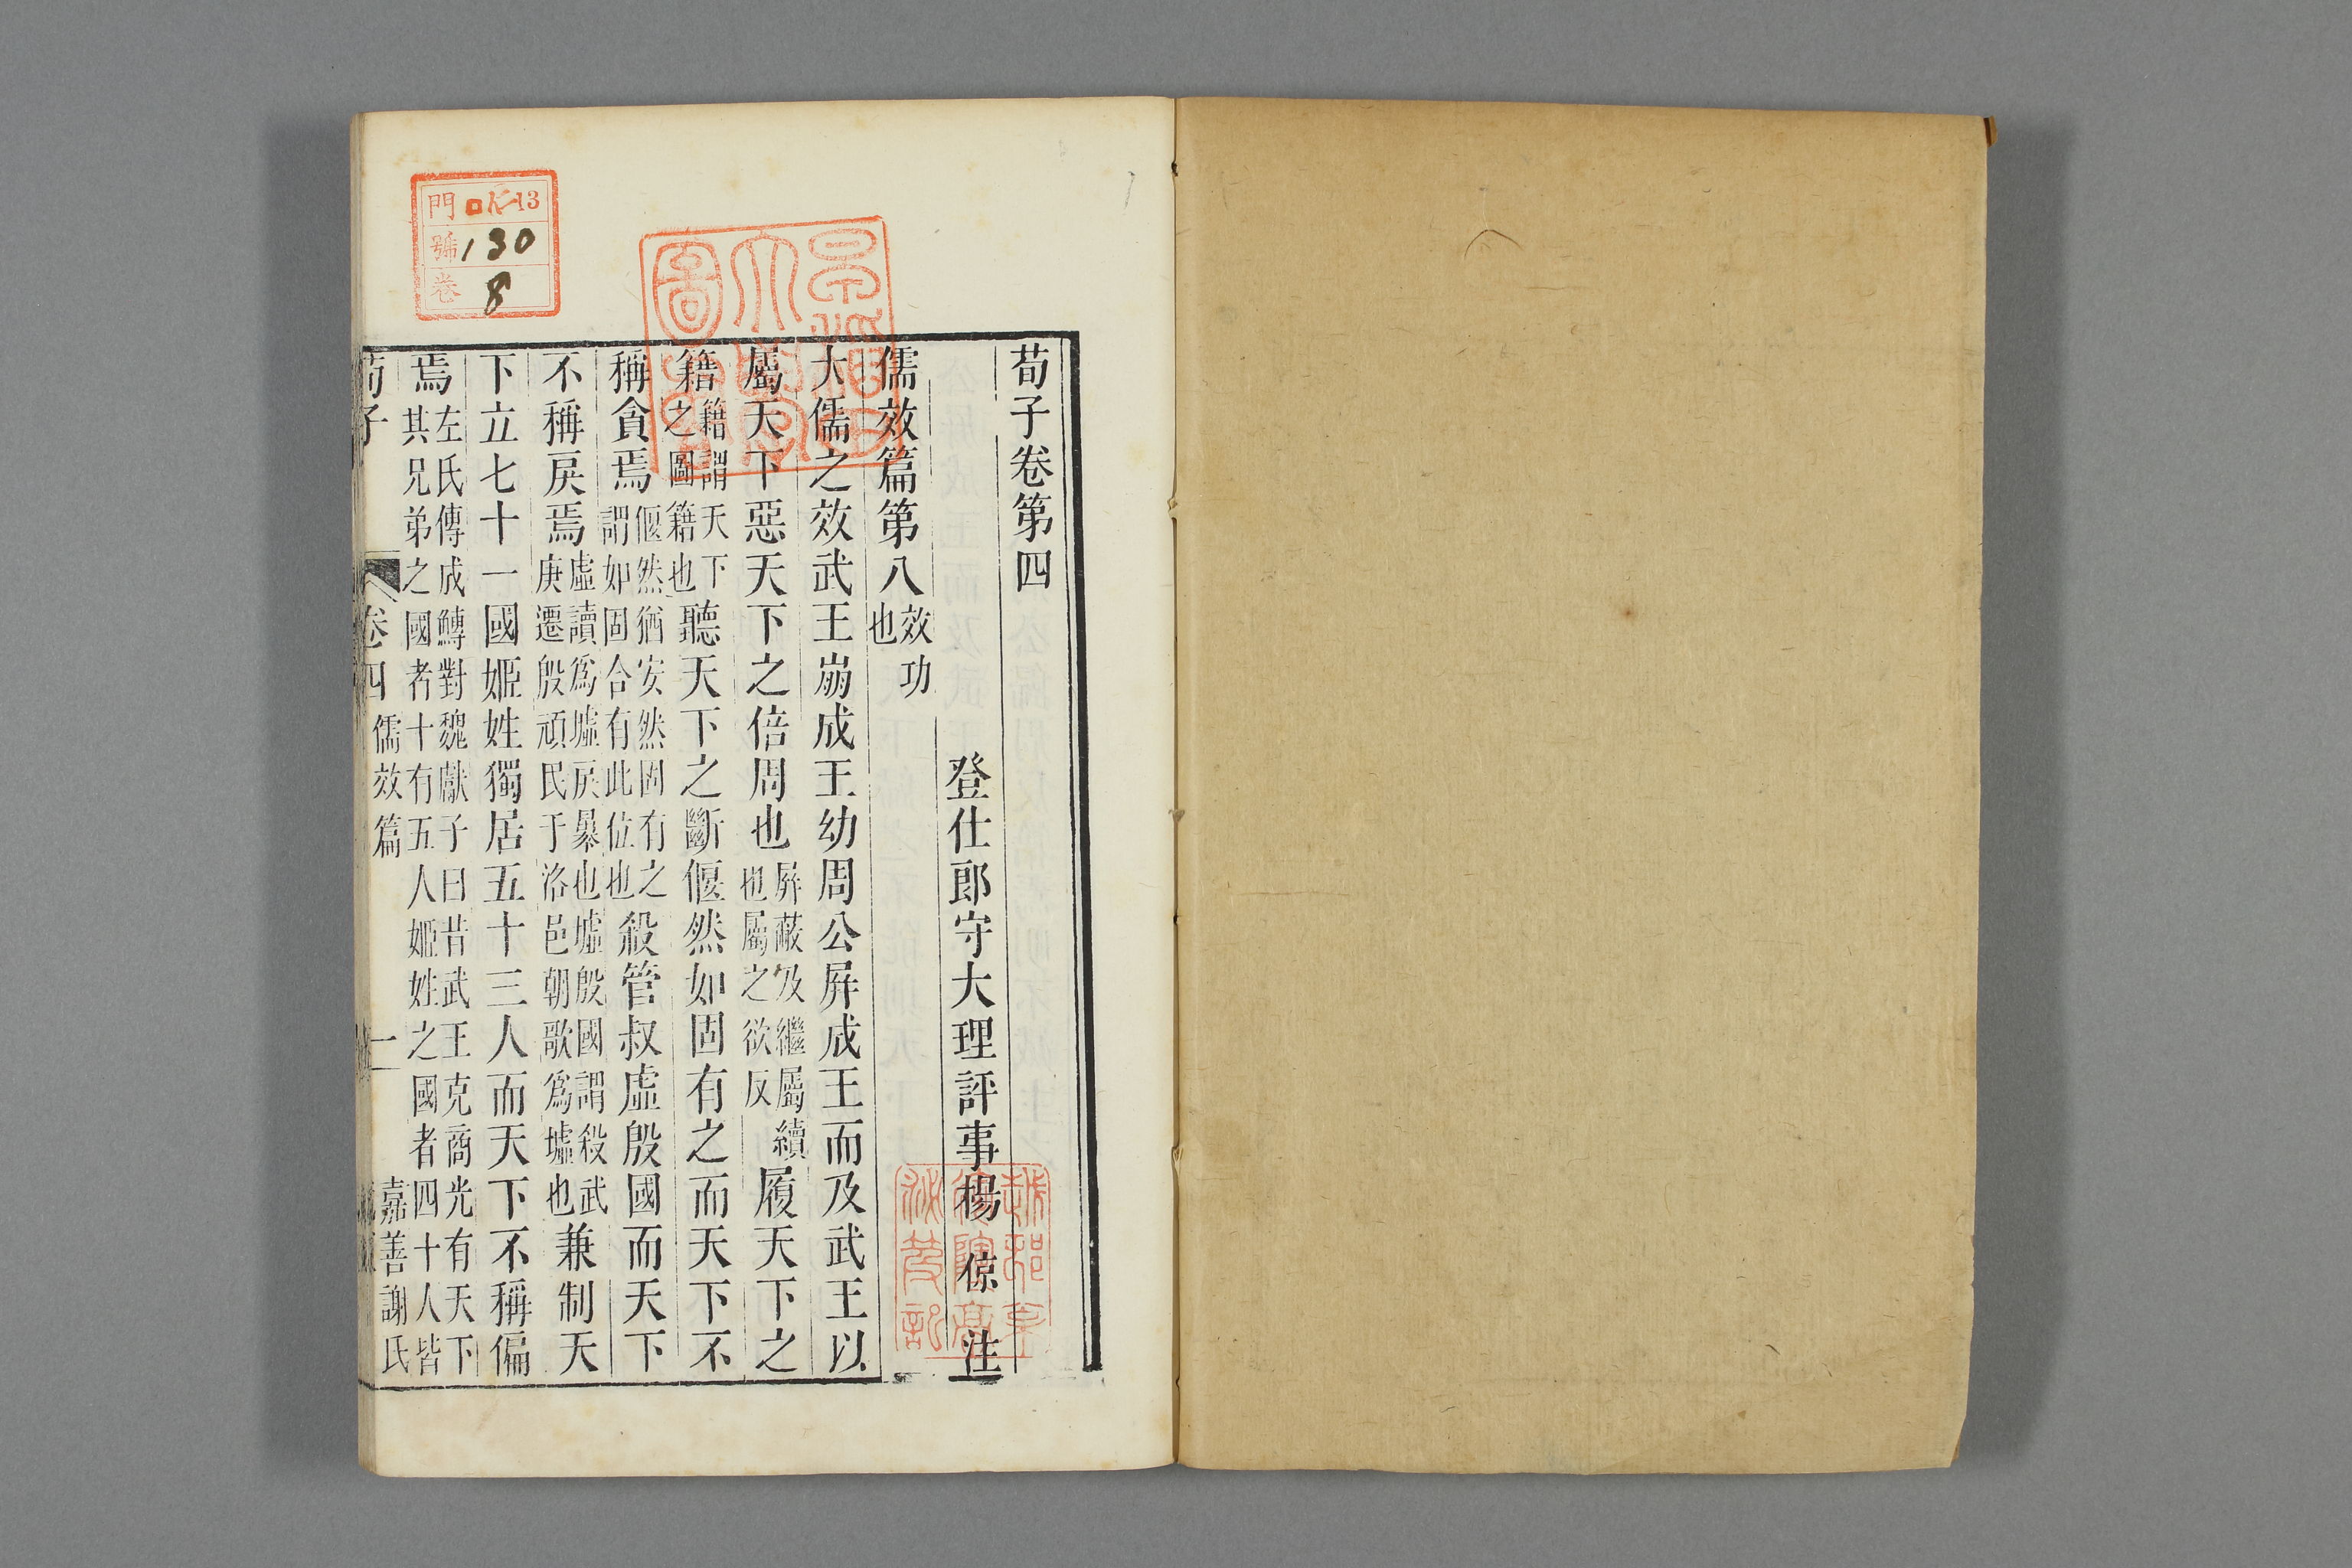 荀子卷第四
登仕郎守大理評事楊倞注
儒效篇第八效功也
大儒之效武王崩成王幼周公屛成王而及武王以
屬天下惡天下之倍周也屛蔽及繼屬續也屬之欲反履天下之
籍籍謂天下之圖籍也聽天下之斷偃然如固有之而天下不
稱貪焉偃然猶安然固有之謂如固合有此位也殺管叔虛殷國而天下
不稱戾焉虛讀爲墟戾暴也墟殷國謂殺武庚遷殷頑民于洛邑朝歌爲墟也兼制天
下立七十一國姬姓獨居五十三人而天下不稱偏
焉左氏傳成鱄對魏獻子曰昔武王克商光有天下其兄弟之國者十有五人姬姓之國者四十人皆
荀子 卷四 儒效篇 一 嘉善謝氏
門 13
號 130
卷 8